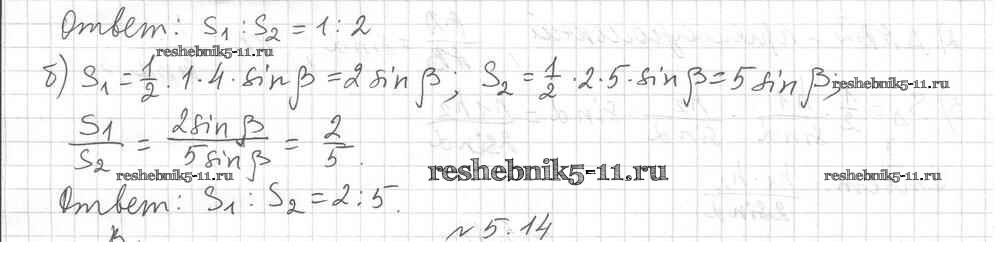 Ответ: S₁ : S₂ = 1 : 2
reshebnik5-11.ru
б) S₁ = 1/2 · 1 · 4 · sin β = 2 sin β; S₂ = 1/2 · 2 · 5 · sin β = 5 sin β;
reshebnik5-11.ru reshebnik5-11.ru
S₁/S₂ = 2 sin β / 5 sin β = 2/5.
reshebnik5-11.ru reshebnik5-11.ru reshebnik5-11.ru
Ответ: S₁ : S₂ = 2 : 5.
№ 5.14